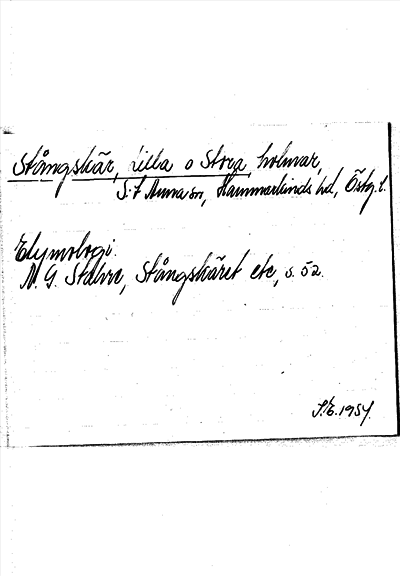 Stångskär, Lilla o Stora, holmar,
S:t Anna sn, Hammarkinds hd, Östg. l.
Etymologi.
N. G. Stahre, Stångskäret etc, s. 52.
1954.